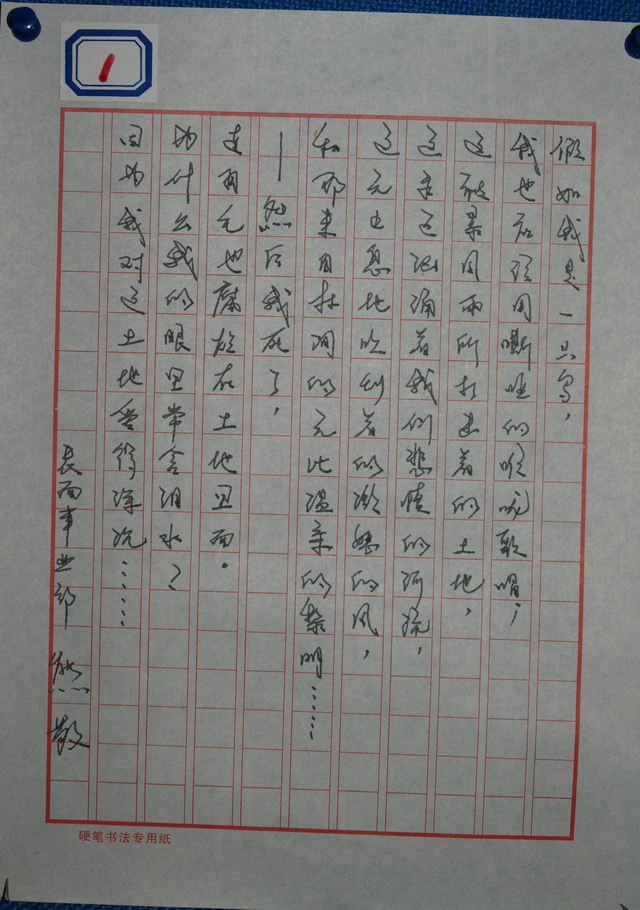 1
假如我是一只鸟，
我也应该用嘶哑的喉咙歌唱；
这被暴风雨所打击着的土地，
这永远汹涌着我们悲愤的河流，
这无止息地吹刮着的激怒的风，
和那来自林间的无比温柔的黎明……
—然后我死了，
连羽毛也腐烂在土地里面。
为什么我的眼里常含泪水？
因为我对这土地爱得深沉……
表面事业部 熊
硬笔书法专用纸